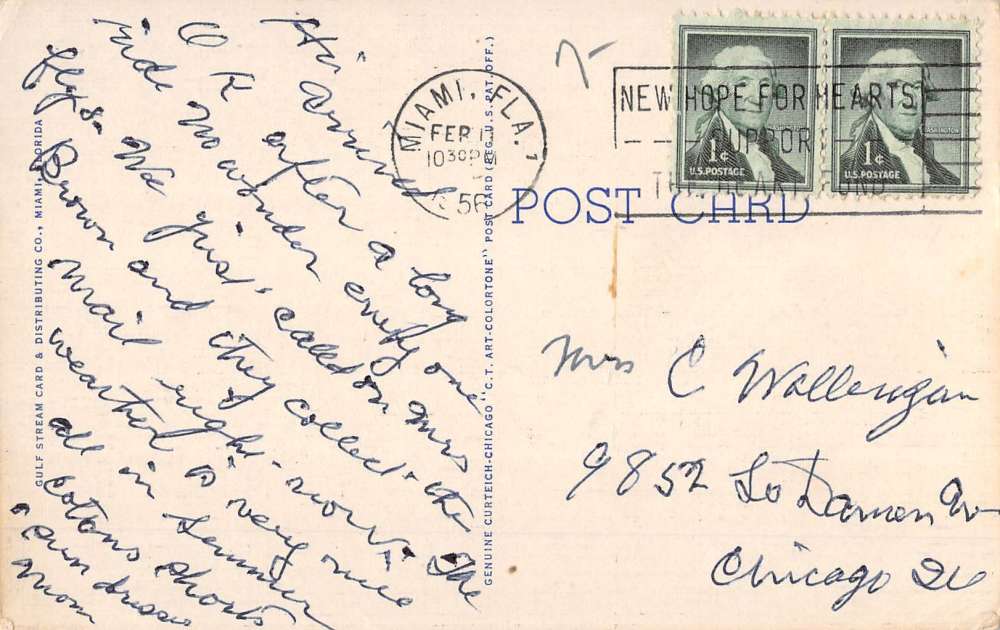 Hi arrived
O K after a long
rid no wonder every one
flys. We just called on Mrs
Brown and they collect the
mail right now. The
weather is very nice
all in summer
cotons shorts
& sun dresses
Mom
GULF STREAM CARD & DISTRIBUTING CO., MIAMI, FLORIDA
GENUINE CURTEICH-CHICAGO "C.T. ART-COLORTONE" POST CARD (REG. U.S. PAT. OFF.)
MIAMI, FLA. 1
FEB
1030 PM
56
NEW HOPE FOR HEARTS
SUPPORT
THE HEART FUND
WASHINGTON
1¢
U.S. POSTAGE
WASHINGTON
1¢
U.S. POSTAGE
POST CARD
Mrs C Wallengian
9852 So Damen Av
Chicago Ill